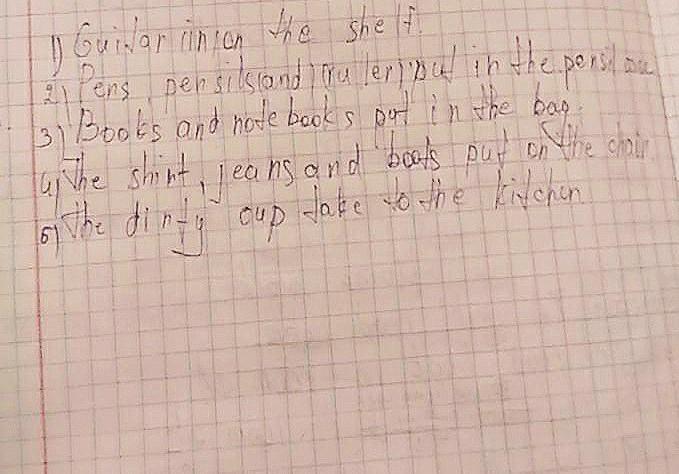 1) Guitar on the shelf.
2) Pens pensils (and) (ruller) put in the pensil
3) Books and notebooks put in the bag.
4) The shirt, jeans and boots put on the chair
5) The dirty cup take to the kitchen.